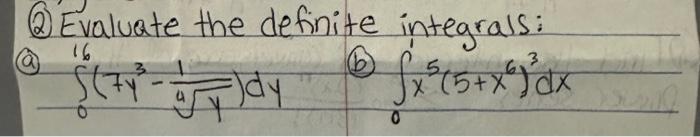 ② Evaluate the definite integrals:
ⓐ ∫₀¹⁶ (7y³ - 1/∜y) dy ⓑ ∫₀ x⁵(5+x⁶)³ dx